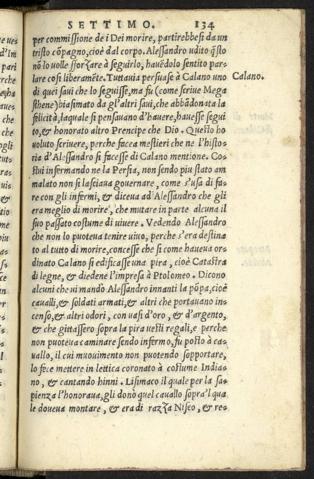 SETTIMO. 134
per commissione de i Dei morire, partirebbesi da un
tristo cõpagno, cioè dal corpo. Alessandro udito q̃sto
nõ lo volle sforzare à seguirlo, havẽdolo sentito par⸗
lare cosi liberamẽte. Tuttavia persuase à Calano uno
Calano.
di quei savi che lo seguisse, ma fu (come scrive Mega
sthene) biasimato da gl'altri savi, che abbãdonata la
felicità, laquale si pensavano d'havere, havesse segui
to, & honorato altro Prencipe che Dio. Questo ho
voluto scrivere, perche facea mestieri che ne l'histo⸗
ria d'Alessandro si facesse di Calano mentione. Co⸗
stui infermando ne la Persia, non sendo piu stato am
malato non si lasciava governare, come s'usa di fa⸗
re con gli infermi, & diceva ad Alessandro che gli
era meglio di morire, che mutare in parte alcuna il
suo passato costume di vivere. Vedendo Alessandro
che non lo poteva tenere vivo, perche s'era destina
to al tutto di morire, concesse che si come haveva or⸗
dinato Calano si edificasse una pira, cioè Catastra
di legne, & diedene l'impresa à Ptolomeo. Dicono
alcuni che vi mandò Alessandro innanti la põpa, cioè
cavalli, & soldati armati, & altri che portavano in⸗
censo, & altri odori, con vasi d'oro, & d'argento,
& che gittassero sopra la pira vesti regali, e perche
non poteva caminare sendo infermo, fu posto à ca⸗
vallo, il cui movimento non potendo sopportare,
lo fece mettere in lettica coronato à costume India⸗
no, & cantando hinni. Lisimaco il quale per la sa⸗
pienza l'honorava, gli donò quel cavallo sopra'l qua
le doveva montare, & era di razza Niseo, & res⸗